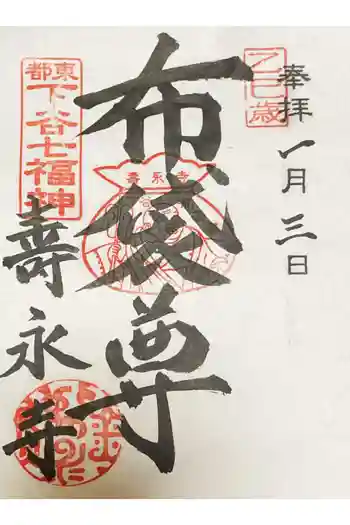 奉拝
一月三日
乙巳歳
布袋尊
壽永寺
東都
下谷七福神
壽永寺